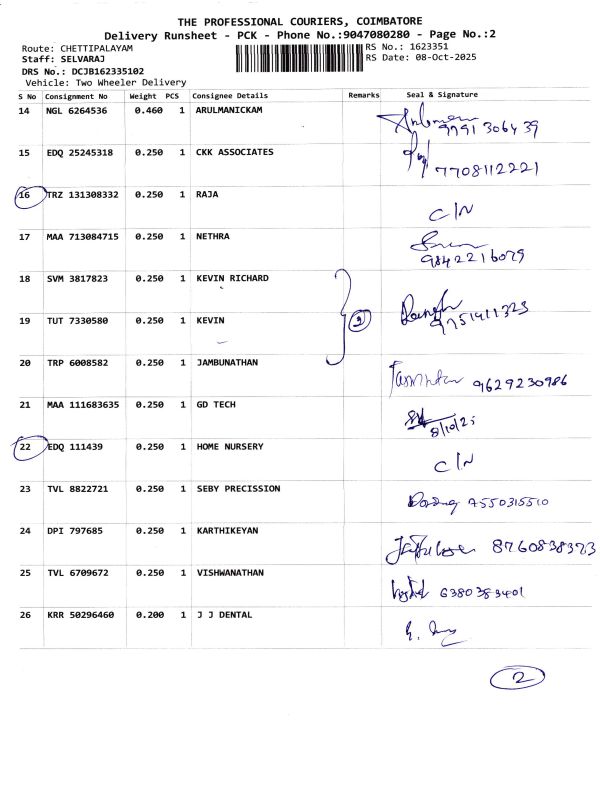 THE PROFESSIONAL COURIERS, COIMBATORE
Delivery Runsheet - PCK - Phone No.:9047080280 - Page No.:2
Route: CHETTIPALAYAM RS No.: 1623351
Staff: SELVARAJ RS Date: 08-Oct-2025
DRS No.: DCJB162335102
Vehicle: Two Wheeler Delivery
S No Consignment No Weight PCS Consignee Details Remarks Seal & Signature
14 NGL 6264536 0.460 1 ARULMANICKAM
9791306439
15 EDQ 25245318 0.250 1 CKK ASSOCIATES
7708112221
16 TRZ 131308332 0.250 1 RAJA
C/N
17 MAA 713084715 0.250 1 NETHRA
9842216079
18 SVM 3817823 0.250 1 KEVIN RICHARD
2
9751411323
19 TUT 7330580 0.250 1 KEVIN
20 TRP 6008582 0.250 1 JAMBUNATHAN
9629230986
21 MAA 111683635 0.250 1 GD TECH
8/10/25
22 EDQ 111439 0.250 1 HOME NURSERY
C/N
23 TVL 8822721 0.250 1 SEBY PRECISSION
7550315510
24 DPI 797685 0.250 1 KARTHIKEYAN
8760838323
25 TVL 6709672 0.250 1 VISHWANATHAN
6380383401
26 KRR 50296460 0.200 1 J J DENTAL
2